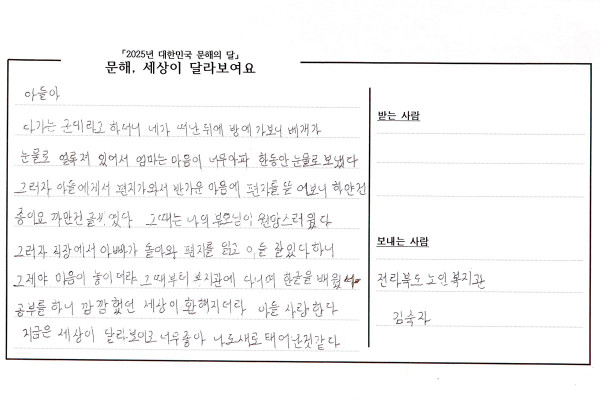 『2025년 대한민국 문해의 달』
문해, 세상이 달라보여요
아들아
다가는 군대라고 하더니 네가 떠난뒤에 방에 가보니 베개가
눈물로 얼룩져 있어서 엄마는 마음이 너무아파 한동안 눈물로 보냈다
그러자 아들에게서 편지가와서 반가운 마음에 편지를 뜯어보니 하얀건
종이요 까만건 글씨였다 그때는 나의 부모님이 원망스러웠다
그러자 직장에서 아빠가 돌아와 편지를 읽고 아들 잘있다 하니
그제야 마음이 놓이더라 그때부터 복지관에 다니며 한글을 배웠
공부를 하니 깜깜했던 세상이 환해지더라 아들 사랑한다
지금은 세상이 달라보이고 너무좋아 나도새로 태어난것같다
받는 사람
보내는 사람
전라북도 노인복지관
김축자